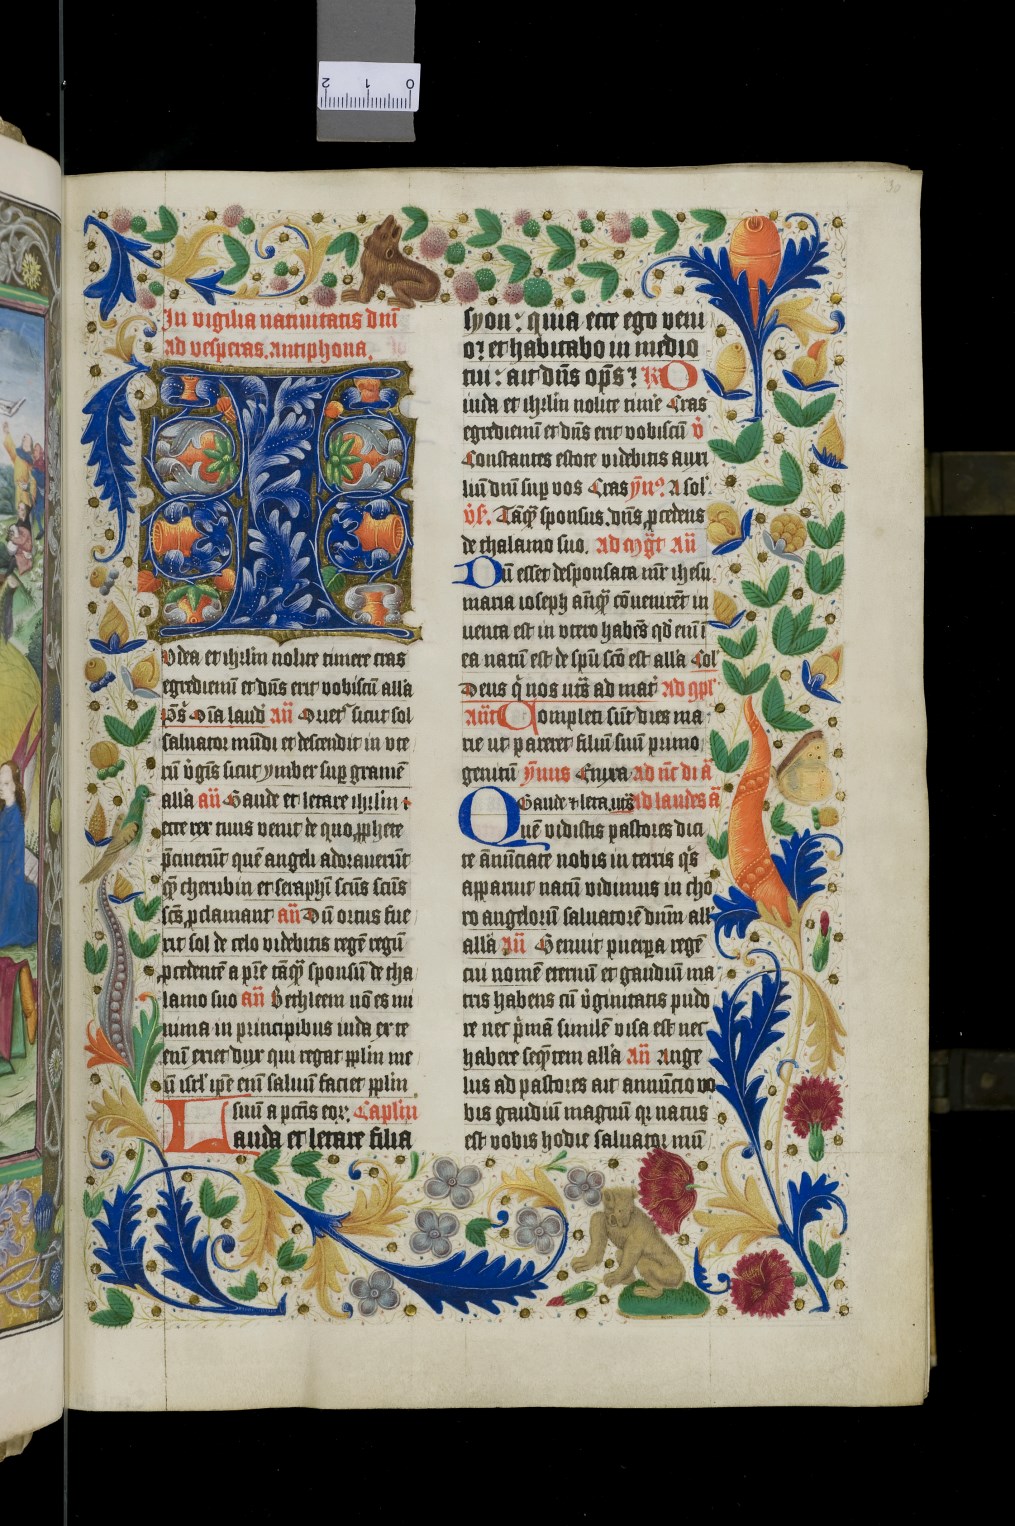 In vigilia natiuitatis dnī
ad vesperas. Antiphona.
I
Vdea et ihrlm nolite timere cras
egrediemī et dn̄s erit vobiscū alla
ps̄ Oīa laudꝫ an̄ Oriet᷑ sicut sol
saluator mūdi et descendit in vte
rū v̓gīs sicut ymber sup gramē
alla an̄ Gaude et letare ihrlm
ecce rex tuus venit de quo ꝓphete
p̄cinerūt quē angeli adorauerūt
qꝫ cherubin et seraphī scūs scūs
scs̄ ꝓclamant an̄ Dū ortus fue
rit sol de celo videbitis regē regū
ꝓcedentē a p̄re tāqꝫ sponsū de tha
lamo suo an̄ Bethleem nō es mi
nima in principibus iuda ex te
enī exiet dux qui regat pplm me
ū isrl ip̄e enī saluū faciet pplm
suū a pctīs eoꝝ. Caplm
Lauda et letare filia
syon: quia ecce ego veni
or et habitabo in medio
tui: ait dn̄s op̄s: R̄ O
iuda et ihrlm nolite time Cras
egrediemī et dn̄s erit vobiscū v̓
Constantes estote videbitis auxi
liū dnī sup vos Cras ym̄ꝰ. A sol
v̓s. Tāqꝫ sponsus. dn̄s ꝓcedens
de thalamo suo. Ad mgt̄ an̄
Dū esset desponsata mr̄ ihesu
maria ioseph an̄qꝫ cōuenirēt in
uenta est in vtero habēs qd̓ enī ī
ea natū est de spū scō est alla Col
Deus q̓ nos vt̄s ad mat̓ Ad ꝯpl
Ant̄ Completi sūt dies ma
rie ut pareret filiū suū primo
genitū ymnus Enixa ad nc̄ di an̄
Gaude ⁊ leta. vt̄s ad laudes an̄
Quē vidistis pastores dici
te ānūciate nobis in terris qs̄
apparuit natū vidimus in cho
ro angelorū saluatorē dnm all
alla an̄ Genuit puerpa regē
cui nomē eternū et gaudiū ma
tris habens cū v̓ginitatis pudo
re nec p̓mā similē visa est nec
habere sequentem alla an̄ Ange
lus ad pastores ait annūcio vo
bis gaudiū magnū qr natus
est vobis hodie saluator mū
30
0 1 2